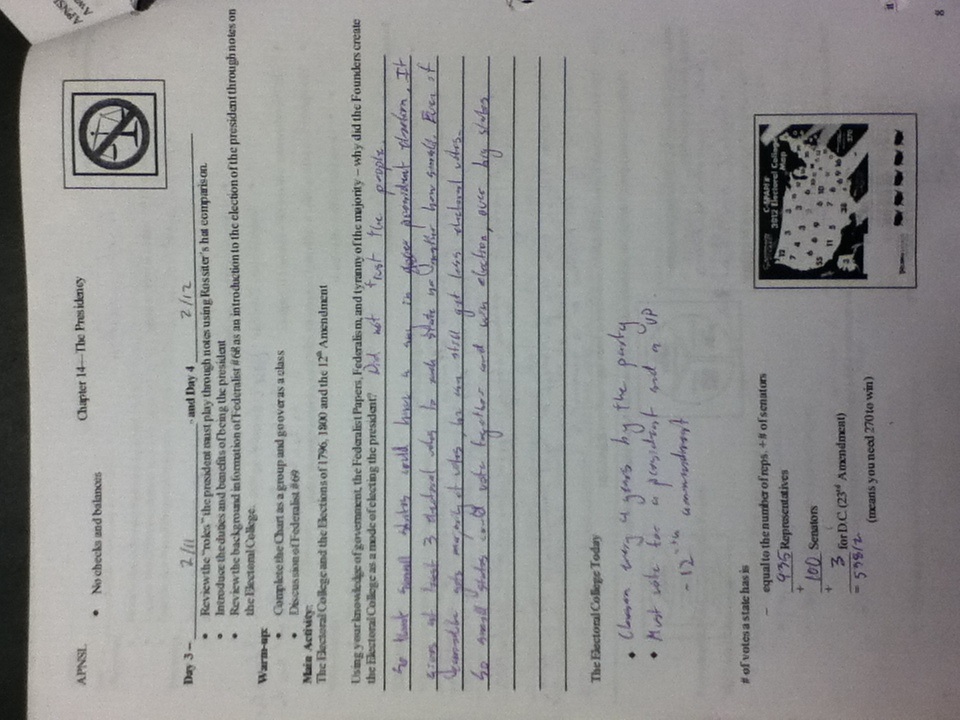 APNSL
Chapter 14—The Presidency
• No checks and balances
Day 3 – 2/11 - and Day 4 2/12
• Review the "roles" the president must play through notes using Rossiter's hat comparison.
• Introduce the duties and benefits of being the president
• Review the background information of Federalist #68 as an introduction to the election of the president through notes on
the Electoral College.
Warm-up:
• Complete the Chart as a group and go over as a class
• Discussion of Federalist #69
Main Activity:
The Electoral College and the Elections of 1796, 1800 and the 12th Amendment
Using your knowledge of government, the Federalist Papers, Federalism, and tyranny of the majority – why did the Founders create
the Electoral College as a mode of electing the president? Did not trust the people.
So that small states could have a say in president election. It
gives at least 3 electoral votes to each state no matter how small. Even if
candidate gets majority of votes, he can still get less electoral votes.
So small states could vote together and win election, over big states
The Electoral College Today
• Chosen every 4 years by the party
• Must vote for a president and a VP.
- 12th ammendment
# of votes a state has is
– equal to the number of reps. + # of senators
435 Representatives
+
100 Senators
+
3 for D.C. (23rd Amendment)
= 538/2
(means you need 270 to win)
C-SPAN's
2012 Electoral College
Map
8